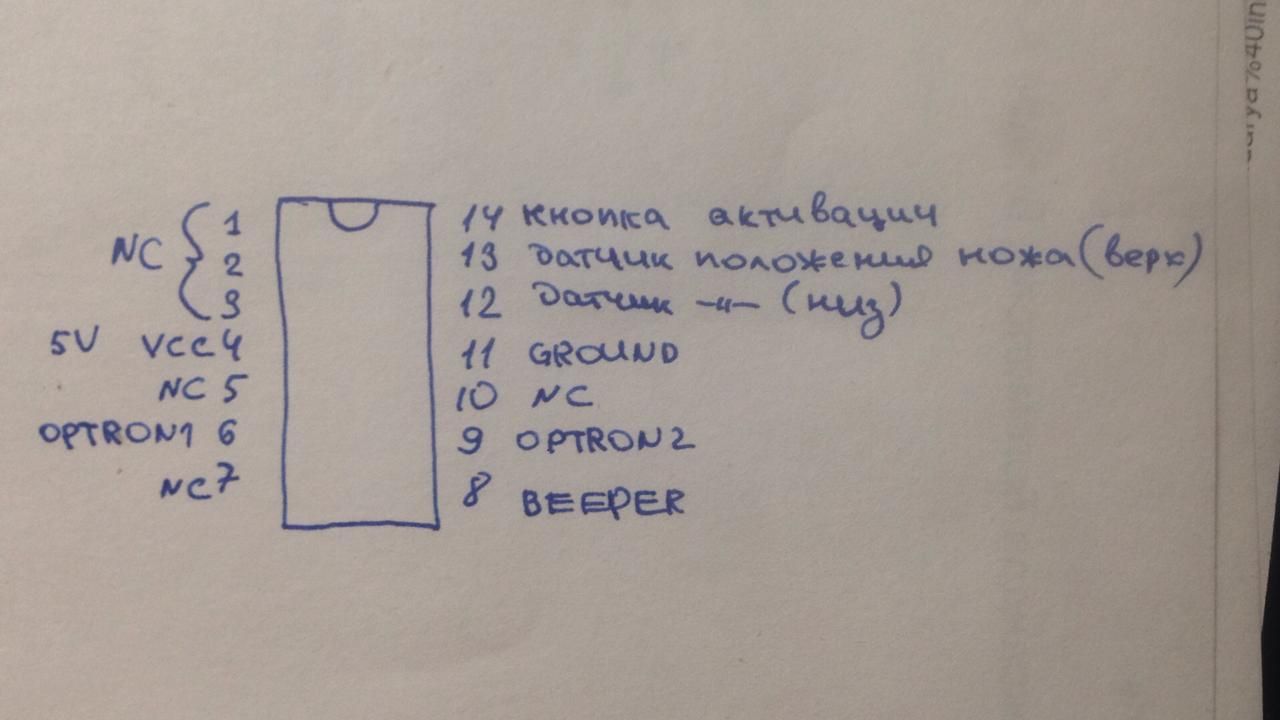 1 14 кнопка активации
NC { 2 13 датчик положения ножа (верх)
3 12 датчик —"— (низ)
5V VCC 4 11 GROUND
NC 5 10 NC
OPTRON1 6 9 OPTRON2
NC 7 8 BEEPER